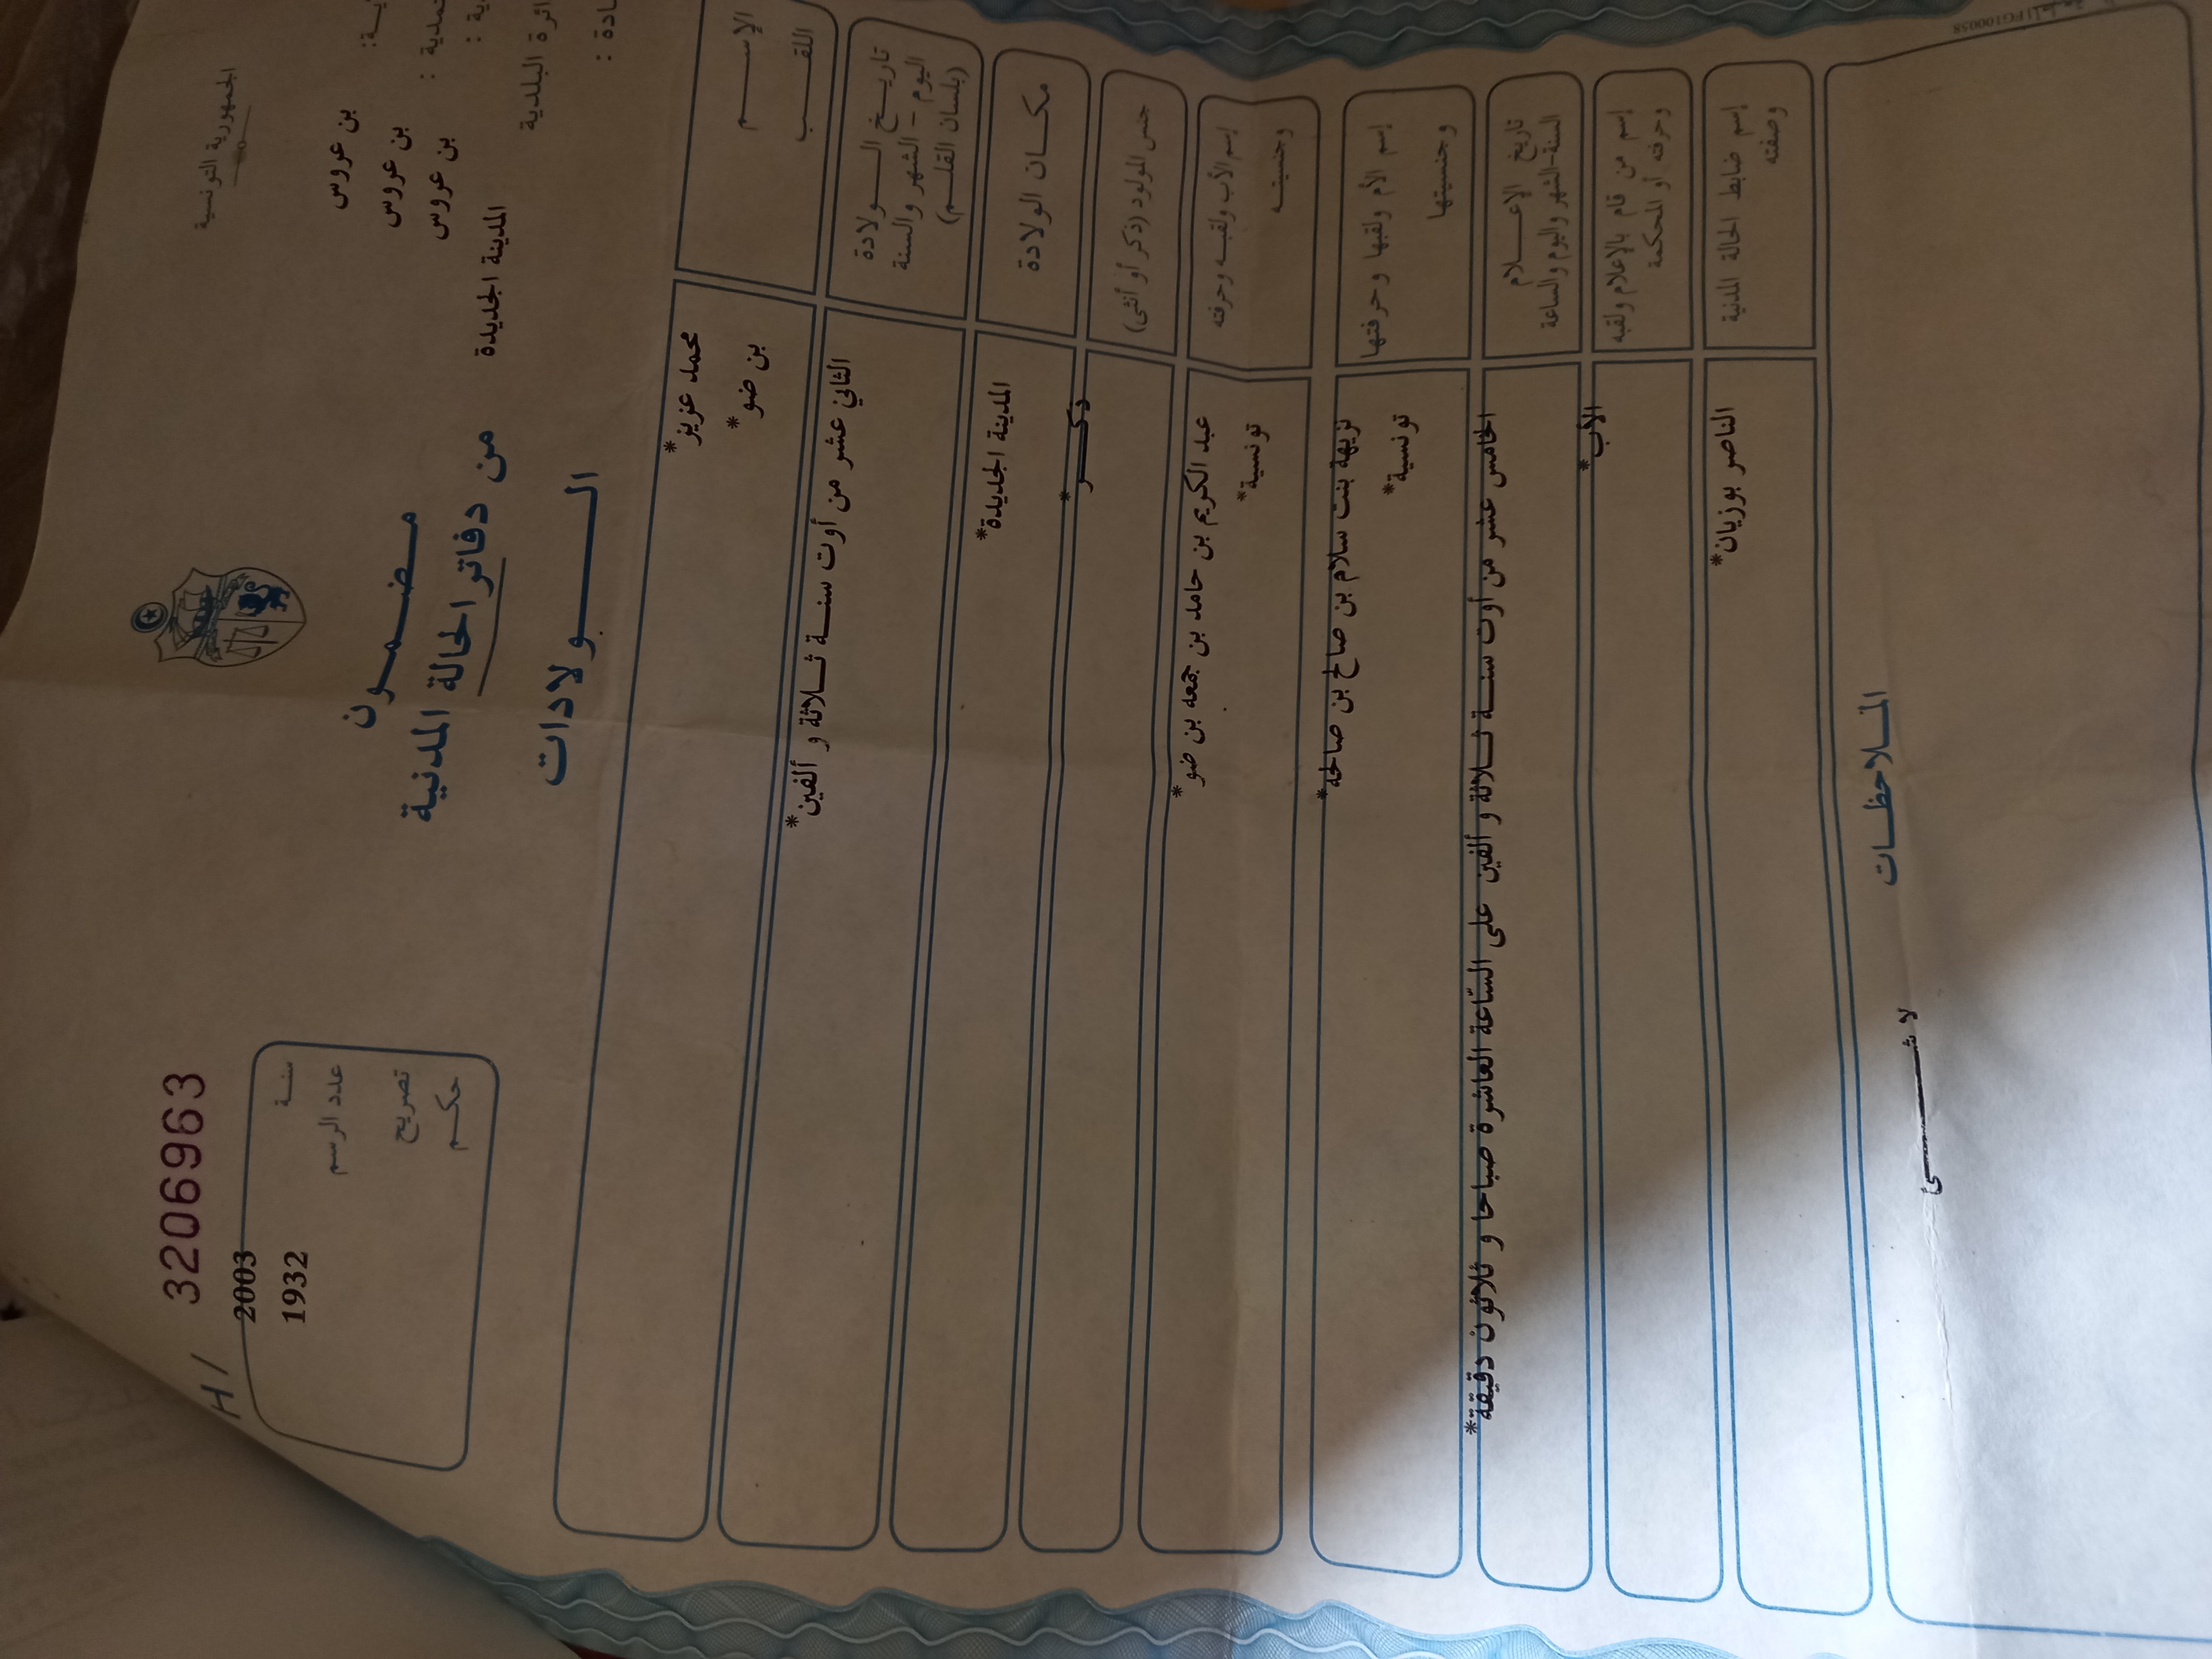 الجمهورية التونسية
H/ 3206963
بن عروس
بن عروس
بن عروس
المدينة الجديدة
مضمون
من دفاتر الحالة المدنية
الولادات
سنة 2003
عدد الرسم 1932
تصريح
حكم
الإسم محمد عزيز*
اللقب بن ضو*
تاريخ الولادة الثاني عشر من أوت سنة ثلاثة و ألفين*
اليوم - الشهر والسنة
(بلسان القلم)
مكان الولادة المدينة الجديدة*
جنس المولود (ذكر أو أنثى) ذكر*
إسم الأب ولقبه وحرفته عبد الكريم بن حامد بن جمعه بن ضو*
وجنسيته تونسية*
إسم الأم ولقبها وحرفتها نزيهة بنت سلام بن صالح بن صالحه*
وجنسيتها تونسية*
تاريخ الإعلام الخامس عشر من أوت سنة ثلاثة و ألفين على الساعة العاشرة صباحا و ثلاثون دقيقة*
السنة-الشهر واليوم والساعة
إسم من قام بالإعلام ولقبه الأب*
وحرفته أو المحكمة
إسم ضابط الحالة المدنية الناصر بوزيان*
وصفته
الملاحظات
لا شئ